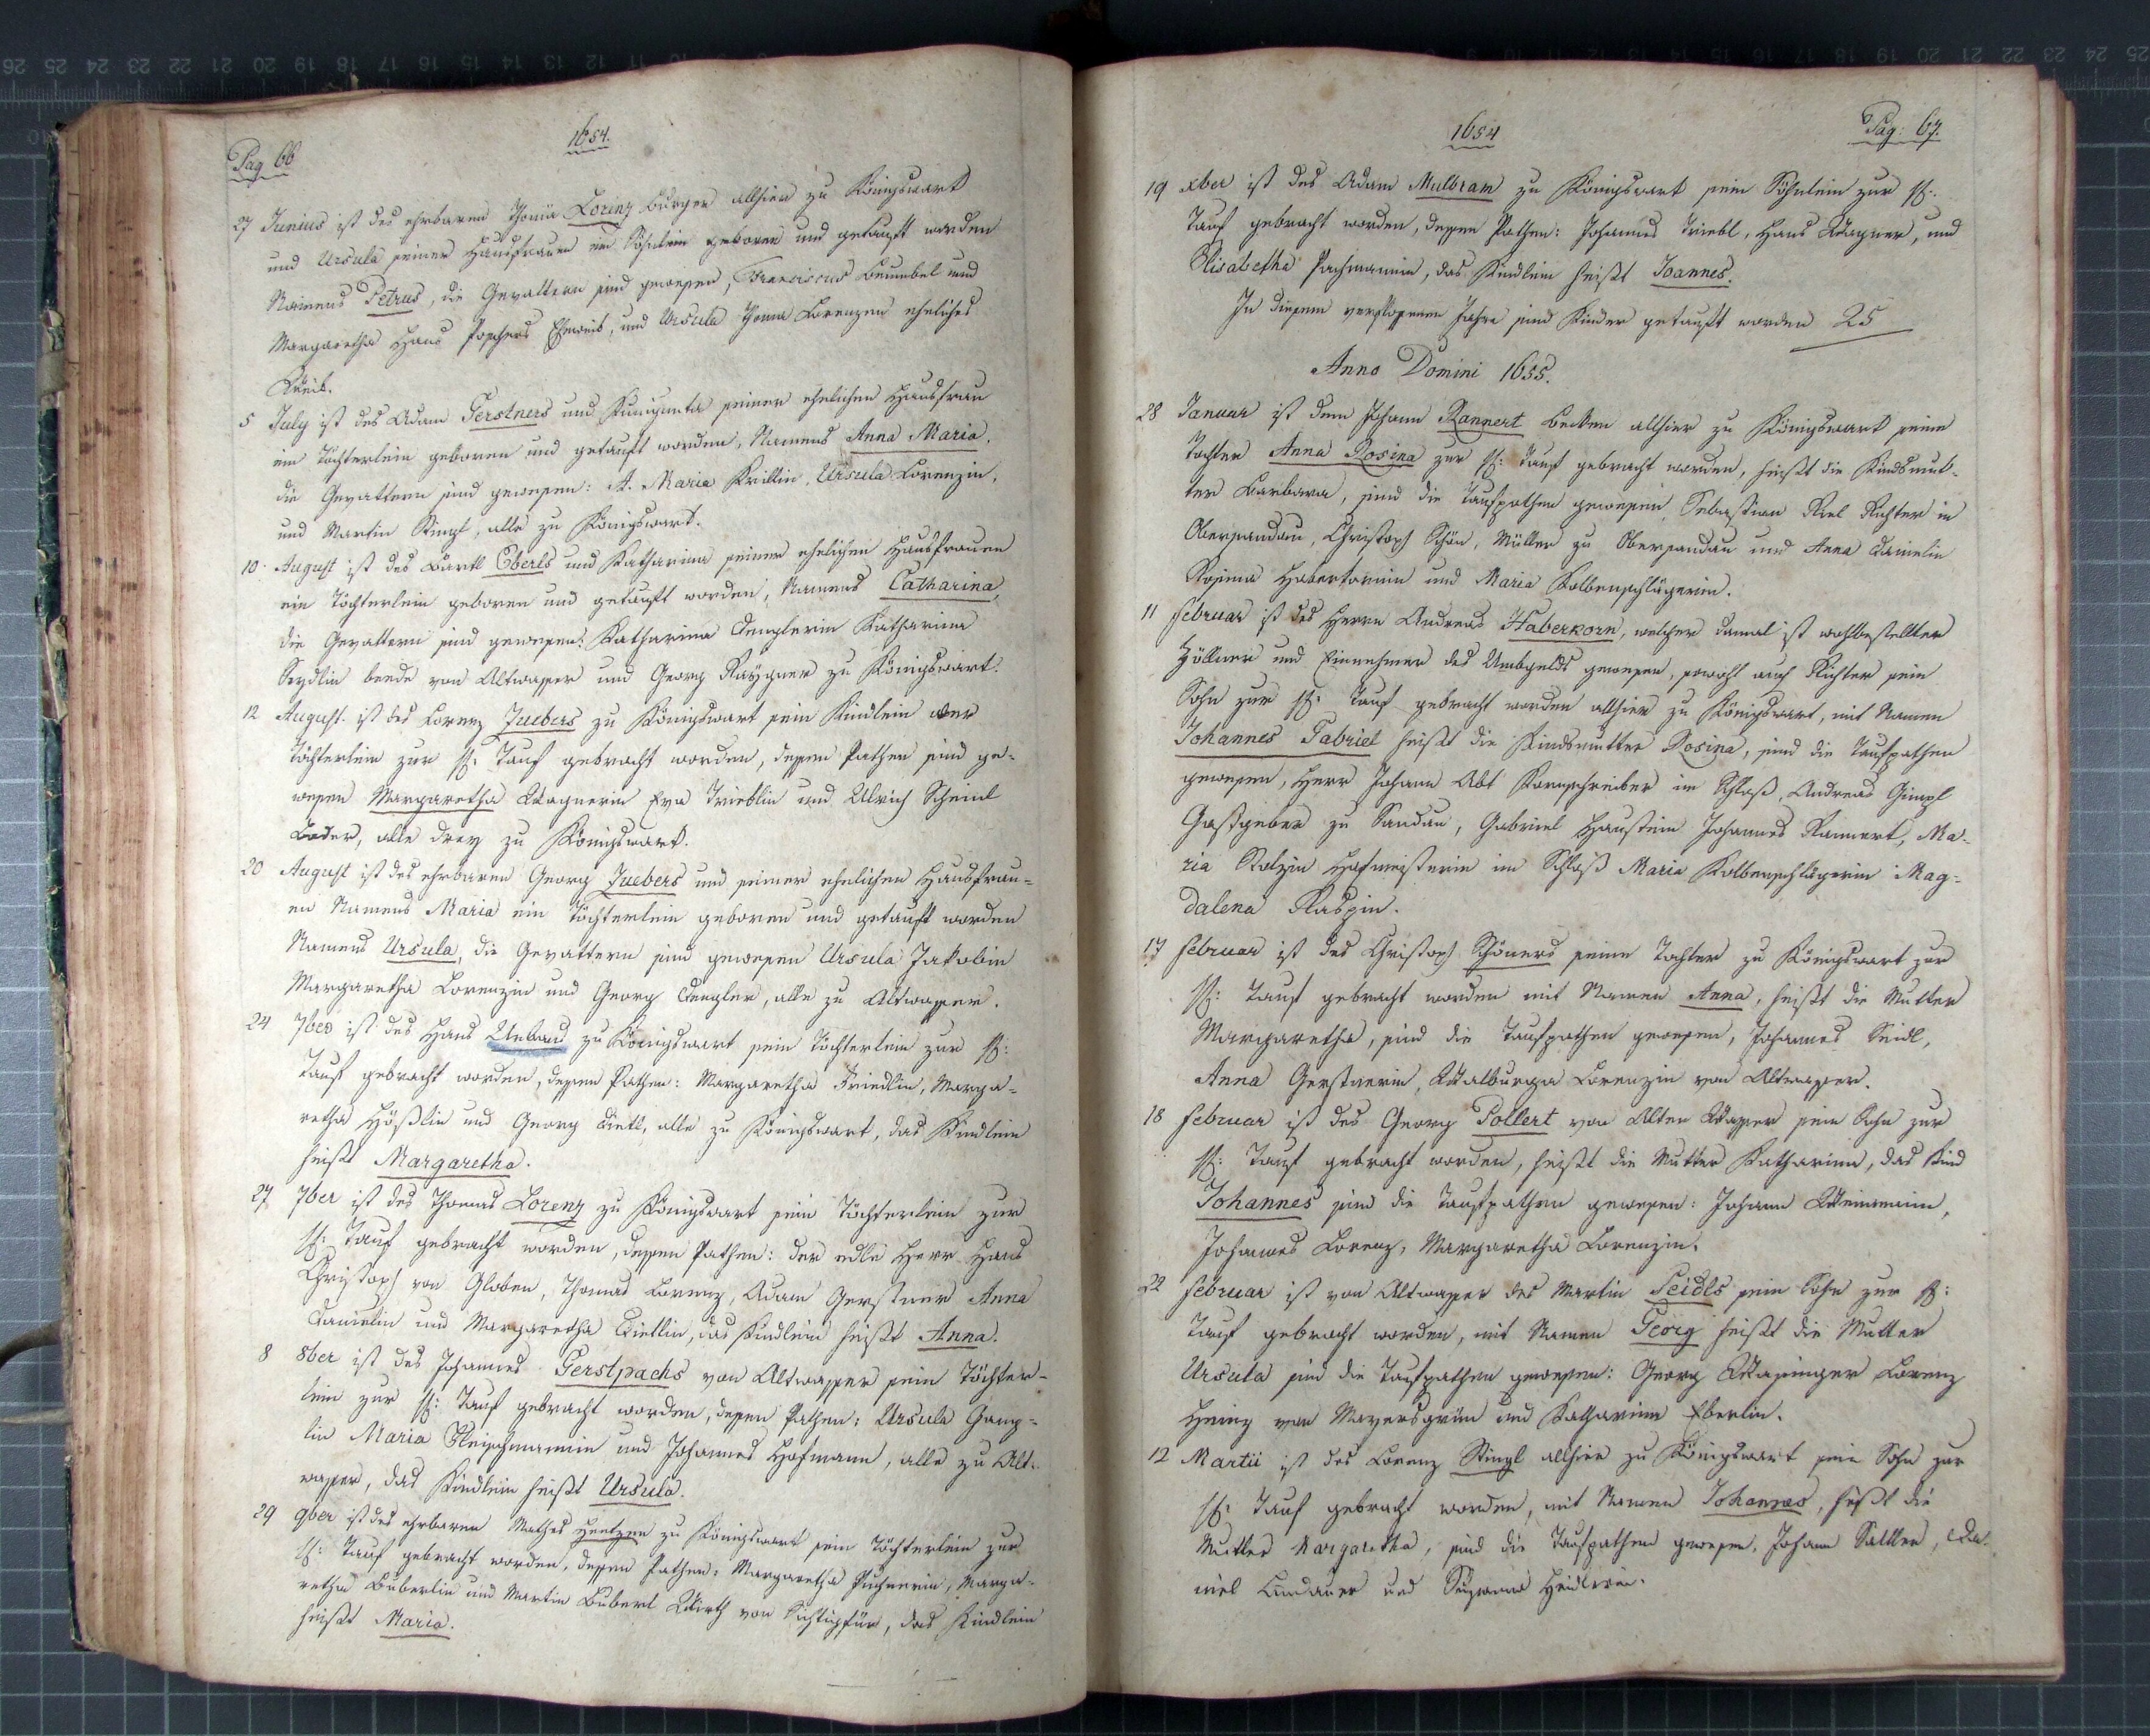 Pag 66
1654.
27 Junius ist des ehrbaren Thomä Lorenz Burger allhier zu Königswart
und Ursula seiner Hausfrauen ein Söhnlein geboren und getauft worden
Namens Petrus, die Gevattern sind gewesen, Franciscus und
Margaretha Hans Eheweib, und Ursula Thoma Lorenzen eheliches
Weib.
5 July ist des Adam Gerstners und Kunigunta seiner ehelichen Hausfrau
ein Töchterlein geboren und getauft worden, Namens Anna Maria.
die Gevattern sind gewesen: A. Maria Krillin, Ursula Lorenzin,
und Martin Stingl, alle zu Königswart.
10 August ist des Bartl Eberls und Katharina seiner ehelichen Hausfrauen
ein Töchterlein geboren und getauft worden, Namens Catharina,
die Gevattern sind gewesen: Katharina Denglerin Katharina
Seydlin beede von Altwasser und Georg zu Königswart.
12 August ist des Lorenz Juebers zu Königswart sein Kindlein oder
Töchterlein zur H: Tauf gebracht worden, dessen Pathen sind ge-
wesen Margaretha Wagnerin Eva Trieblin und Ulrich Scheinl
Bader, alle drey zu Königswart.
20 August ist des ehrbaren Georg Juebers und seiner ehelichen Hausfrau-
en Namens Maria ein Töchterlein geboren und getauft worden
Namens Ursula, die Gevattern sind gewesen Ursula Jakobin
Margaretha Lorenzin und Georg Dengler, alle zu Altwasser.
24 7ber ist des Hans Urban zu Königswart sein Töchterlein zur H:
Tauf gebracht worden, dessen Pathen: Margaretha Friedlin, Marga-
retha Hößlin und Georg Dietl, alle zu Königswart, das Kindlein
heißt Margaretha.
27 7ber ist des Thomas Lorenz zu Königswart sein Töchterlein zur
H: Tauf gebracht worden, dessen Pathen: der edle Herr Hans
Christoph von Globen, Thomas Lorenz, Adam Gerstner Anna
Danielin und Margaretha Dietlin, das Kindlein heißt Anna.
8 8ber ist des Johannes Gerstpachs von Altwasser sein Töchter-
lein zur H: Tauf gebracht worden, dessen Pathen: Ursula Gamp-
lin Maria Fleischmannin und Johannes Hofmann, alle zu Alt-
wasser, das Kindlein heißt Ursula.
29 9ber ist des ehrbaren Mathes Heetzen zu Königswart sein Töchterlein zur
H: Tauf gebracht worden, dessen Pathen: Margaretha Puchnerin, Marga-
retha Buberlin und Martin Buberl Wirth von, das Kindlein
heißt Maria.
1654
Pag: 67.
19 xber ist des Adam Mulbram zu Königswart sein Söhnlein zur H:
Tauf gebracht worden, dessen Pathen: Johannes Triebl, Hans Wagner, und
Elisabetha Pachmannin, das Kindlein heißt Joannes.
In diesem verflossenen Jahre sind Kinder getauft worden 25
Anno Domini 1655.
28 Januar ist dem Johann Rannert Becken allhier zu Königswart seine
Tochter Anna Rosina zur H: Tauf gebracht worden, heißt die Kindsmut-
ter Barbara, sind die Taufpathen gewesen Sebastian Riel Richter in
Obersandau, Christoph Schön, Müller zu Obersandau und Anna Danielin
Rosina Haberkornin und Maria Kolbenschlägerin.
11 Februar ist des Herrn Andreas Haberkorn, welcher damal ist wohlbestellter
Zöllner und Einnehmer des Umbgelds gewesen, sowohl auch Richter sein
Sohn zur H: Tauf gebracht worden allhier zu Königswart, mit Namen
Johannes Gabriel heißt die Kindsmutter Rosina, sind die Taufpathen
gewesen, Herr Johann Abt Kornschreiber im Schloß, Andreas Gimpl
Gastgeber zu Sandau, Gabriel Haustein Johannes Rannert, Ma-
ria Hofmeisterin im Schloß Maria Kolbenschlägerin Mag-
dalena Raspin.
17 Februar ist des Christoph Schöners seine Tochter zu Königswart zur
H: Tauf gebracht worden mit Namen Anna, heißt die Mutter
Margaretha, sind die Taufpathen gewesen, Johannes Seidl,
Anna Gerstnerin, Walburga Lorenzin von Altwasser.
18 Februar ist des Georg Pollert von Alten Wasser sein Sohn zur
H: Tauf gebracht worden, heißt die Mutter Katharina, das Kind
Johannes sind die Taufpathen gewesen: Johann Weinmann,
Johannes Lorenz, Margaretha Lorenzin.
22 Februar ist von Altwasser des Martin Seidls sein Sohn zur H:
Tauf gebracht worden, mit Namen Georg heißt die Mutter
Ursula sind die Taufpathen gewesen: Georg Wasinger Lorenz
Heinz von Mayersgrün und Katharina Eberlin.
12 Martii ist des Lorenz Stingl allhier zu Königswart sein Sohn zur
H: Tauf gebracht worden, mit Namen Johannes, heißt die
Mutter Margaretha, sind die Taufpathen gewesen, Johann Sattler, Da-
niel Lindauer und Susanna Heidlerin.